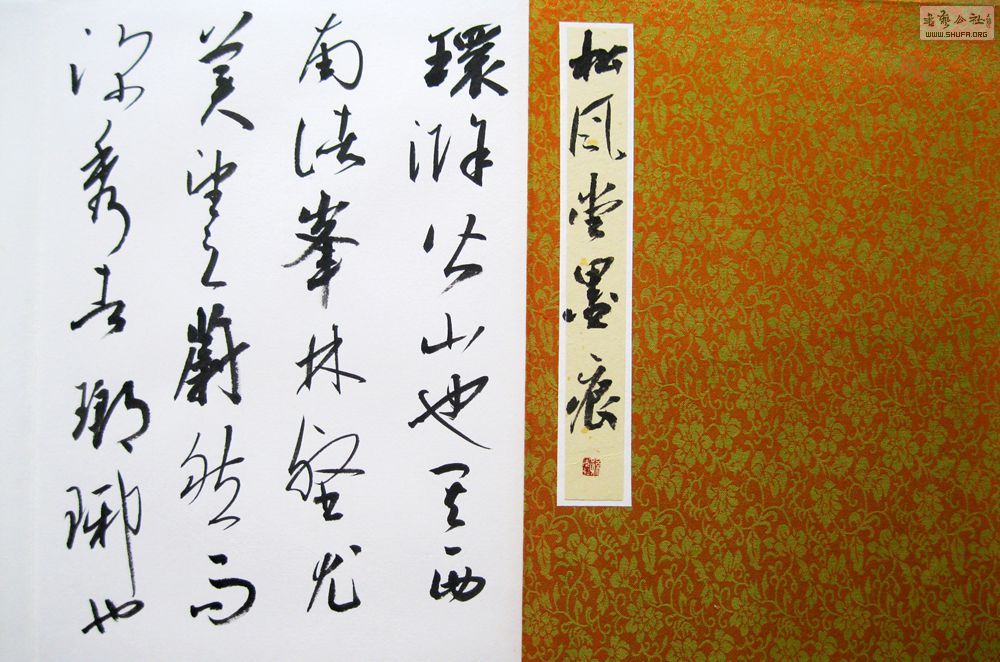 松風堂墨痕
環滁皆山也其西
南諸峯林壑尤
美望之蔚然而
深秀者瑯琊也
書藝公社
WWW.SHUFA.ORG